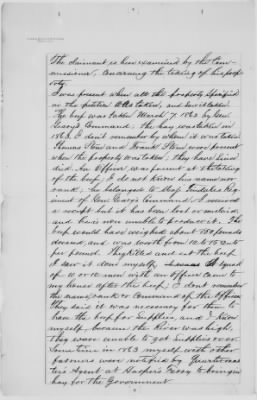 The claimant is here examined by the Com-
missioner, concerning the taking of his prop-
erty.
I was present when all the property specified
in the petition was taken, and saw it taken.
The beef was taken March 7. 1862 by Gen.
Geary's Command, the hay was taken in
1863. I don't remember by whom it was taken
Thomas Stone and Frank Stone were present
when the property was taken. they have since
died. An Officer was present at the taking
of the beef. I do not know his name or
rank, he belonged to Reg-
iment of Gen. Geary's Command. I received
a receipt but it has been lost or
and I am now unable to produce it. The
beef would have weighed about 750 pounds
dressed, and was worth from 10 to 15 cents
per pound. They killed and cut the beef
I saw it done myself, A squad
of 10 or 12 men with an officer came to
my house after the beef. I don't remember
the name, rank or Command of the Officer
They said it was necessary for them to
have the beef for supplies, and I knew
myself, because the River was high.
they were unable to get supplies over
Sometime in 1863 myself with other
farmers were notified by Quartermas-
ter's Agent at Harper's Ferry to bring in
hay for the Government